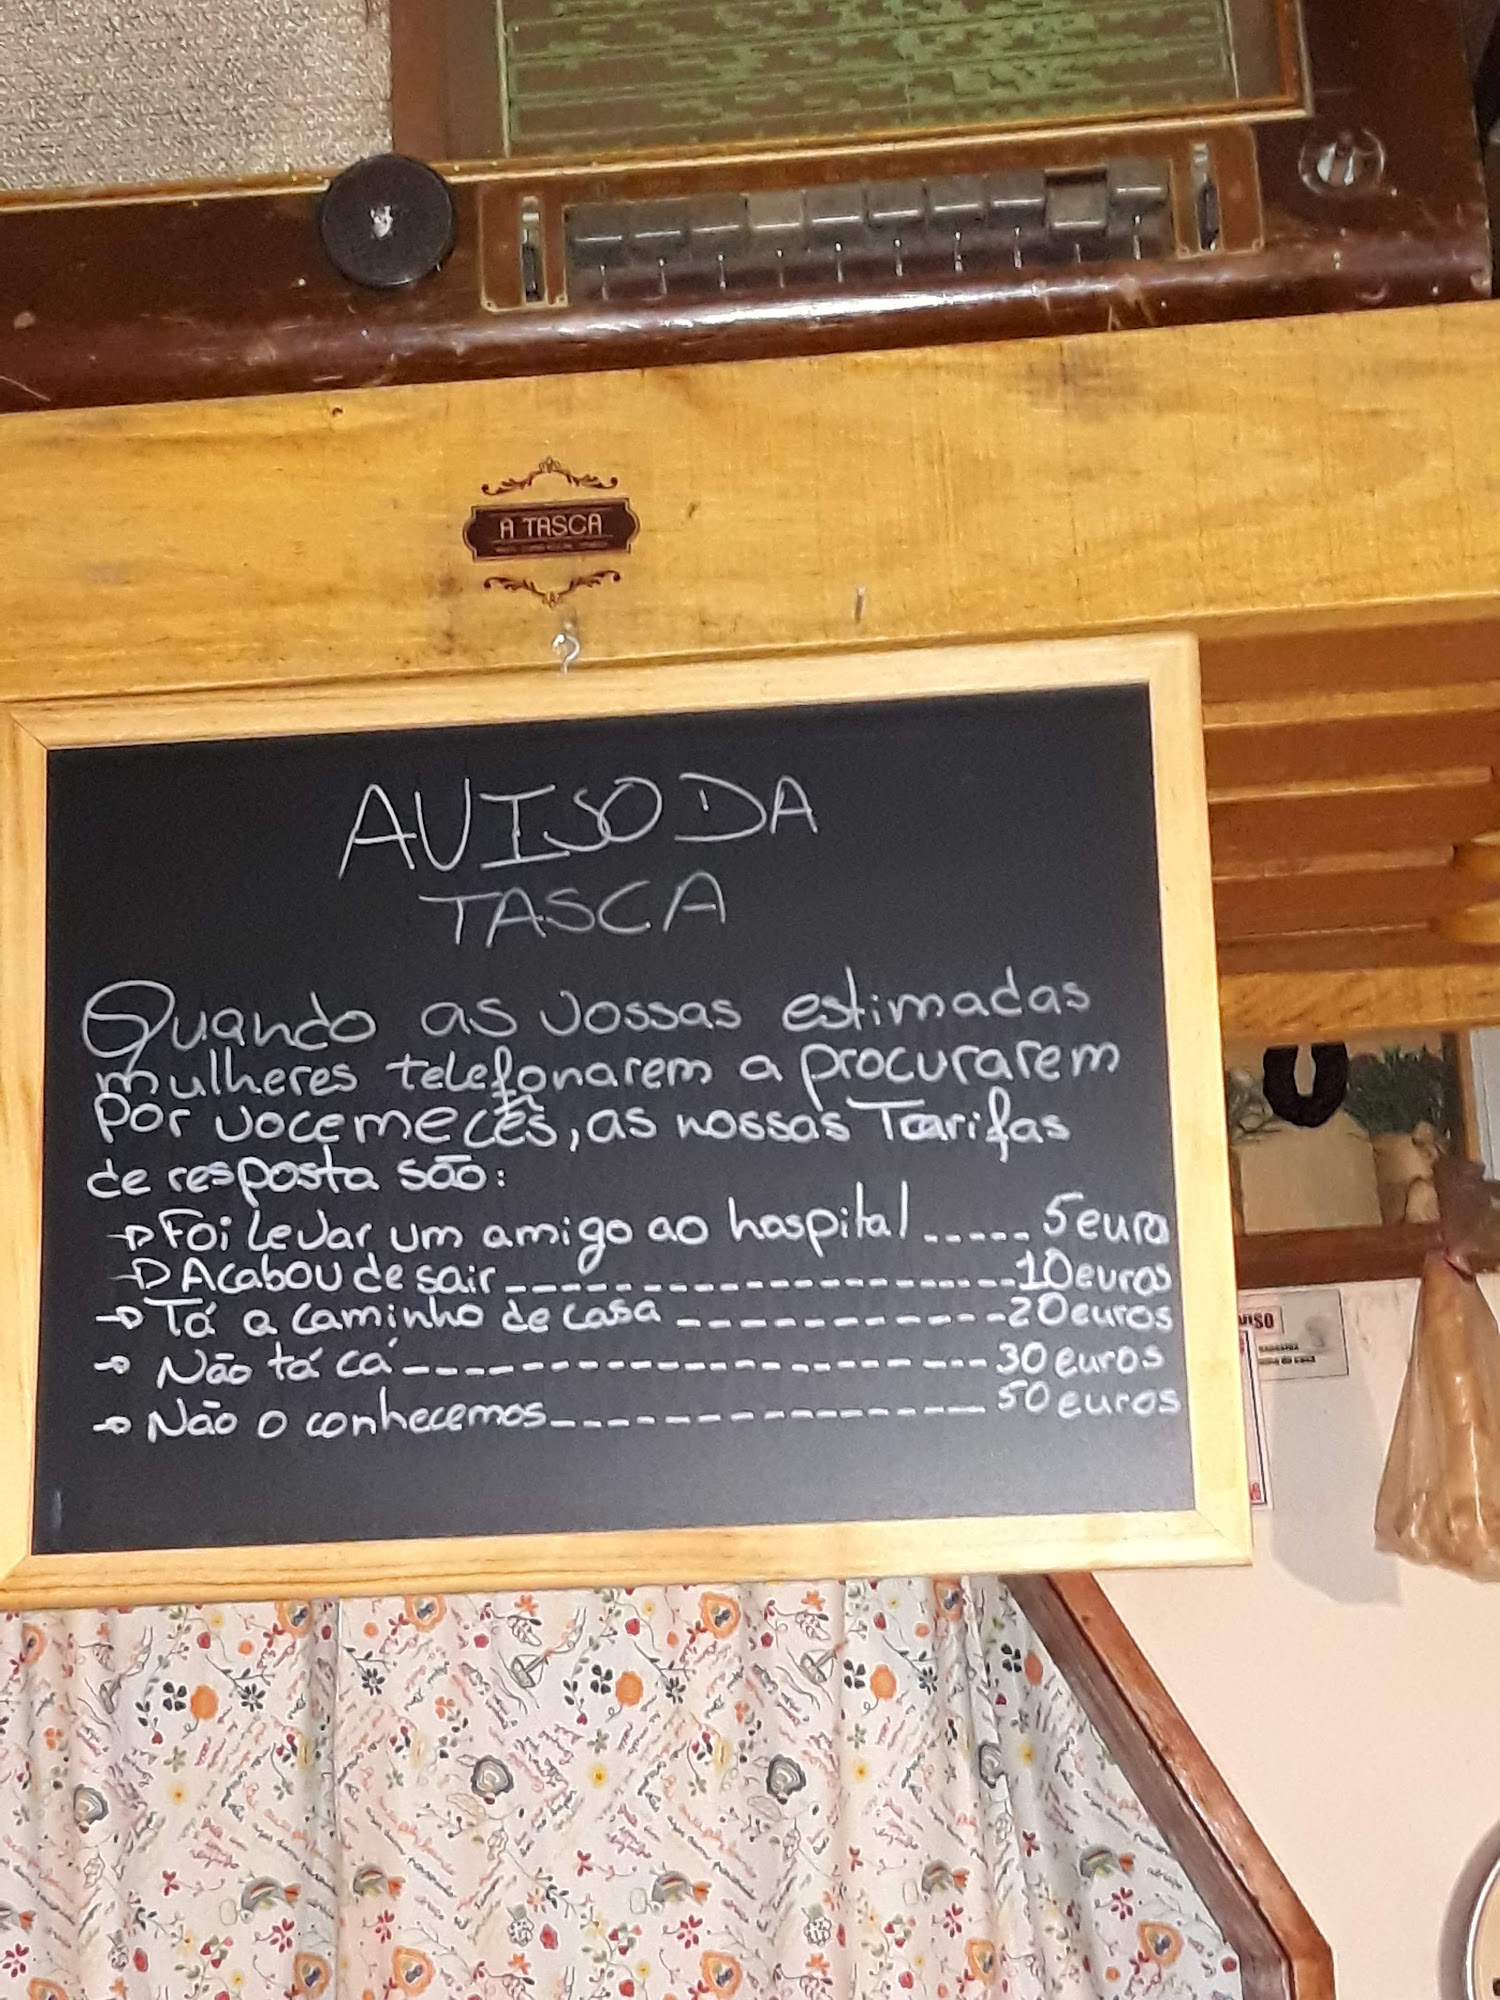 A TASCA
AVISO DA
TASCA
Quando as vossas estimadas
mulheres telefonarem a procurarem
por vocemecês, as nossas Tarifas
de resposta são:
→ Foi levar um amigo ao hospital ..... 5 euro
→ Acabou de sair -------------------- 10 euros
→ Tá a caminho de casa ------------ 20 euros
→ Não tá cá --------------------- 30 euros
→ Não o conhecemos --------------- 50 euros